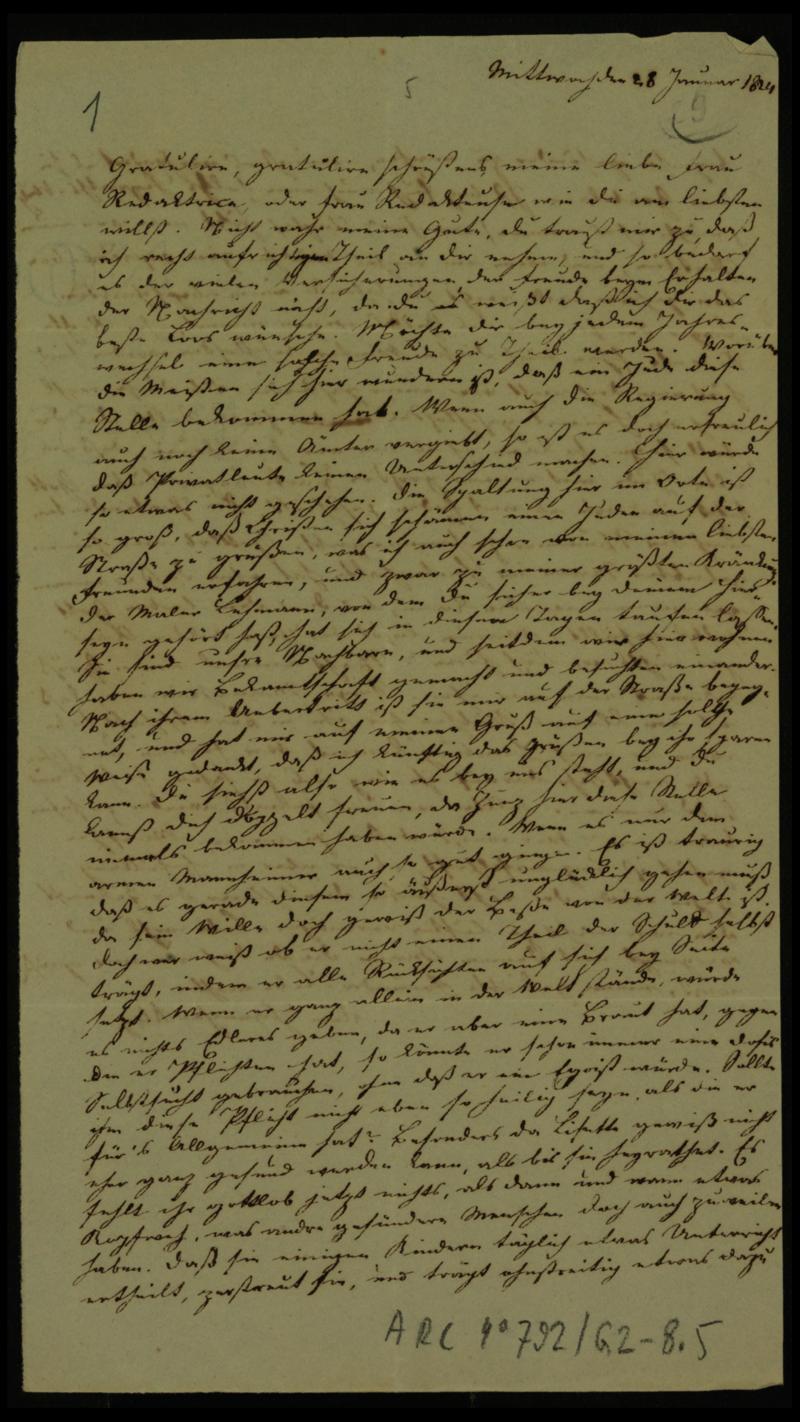 1
5
Mittwoch den 28 Januar 1824
9
Gratulire, gratulire schönstens meine liebe Frau
Redaktrice, oder Frau Redakteuse wie du am liebsten
willst. Nicht wahr meine Gute, du traust mir zu, daß
ich recht aufrichtigen Theil an dir nehme, und so bedarf
es der vielen Versicherungen der Freude beym Erhalten
der Nachricht nicht, da du es weißt daß ich dir das
beste Loos wünsche. Möchte dir bey jedem Jahres-
wechsel eine solche Freude zu Theil werden. Worüber
die Meisten sich hier wundern ist, daß ein Jude diese
Stelle bekommen hat. Wenn auch die Regierung
auch noch keine Ämter vergiebt, so ist es doch erfreulich
daß Privatleute keinen Unterschied machen. Hier würde
so etwas nicht geschehen. Die Spaltung hier im Orte ist
so groß, daß Christen sich schämen einen Juden auf der
Straße zu grüßen, was ich auch schon von meinen liebsten
Freunden erfahren, und zwar zu meiner größten Kränkung.
Der Maler Lehmann, von dem du sicher bey deinem Hier-
seyn gehört hast, hat sich in diesen Tagen taufen lassen.
Sie sind unsre Nachbarn, und seitdem wir hier wohnen
haben wir Bekanntschaft gemacht und besuchten einander.
Nach ihrem Uebertritt ist sie mir auf der Straße begeg-
net, und hat mir auf meinen Gruß auf eine solche
Weise gedankt, daß ich künftig das Grüßen bey ihr sparen
kann. Du siehst also wie es bey uns steht, und du
kannst dich doppelt freuen, da Zunz hier diese Stelle
niemals bekommen haben würde. Wenn es nur dem
armen Mannheimer auch so gut ginge. Es ist traurig
daß es gerade diesem so äußerst unglücklich gehen muß
da sein Wille doch gewiß der Beste von der Welt ist.
Doch wer weiß ob er nicht einen Theil der Schuld selbst
trägt, indem er alle Rücksichten auf sich bey Seite
setzt. Wenn er ganz allein in der Welt stände, würde
es nichts Edleres geben, da er aber eine Braut hat, gegen
die er Pflichten hat, so könnte er schon immer eine Dosis
Selbstsucht gebrauchen, ohne daß er ein Egoist würde. Sollte
ihm diese Pflicht nicht eben so heilig seyn, als die er
für's Allgemeine hat? Besonders da Lisette gewiß nicht
eher ganz gesund werden kann, als bis sie heyrathet. Es
fehlt ihr gottlob jetzt nichts, als dann und wann etwas
Kopfweh, was andre gesündere Menschen doch auch zuweilen
haben. Daß sie einigen Kindern täglich etwas Unterricht
ertheilt, zerstreut sie, und trägt ohnstreitig etwas dazu
ARC 4° 792/G2-8.5